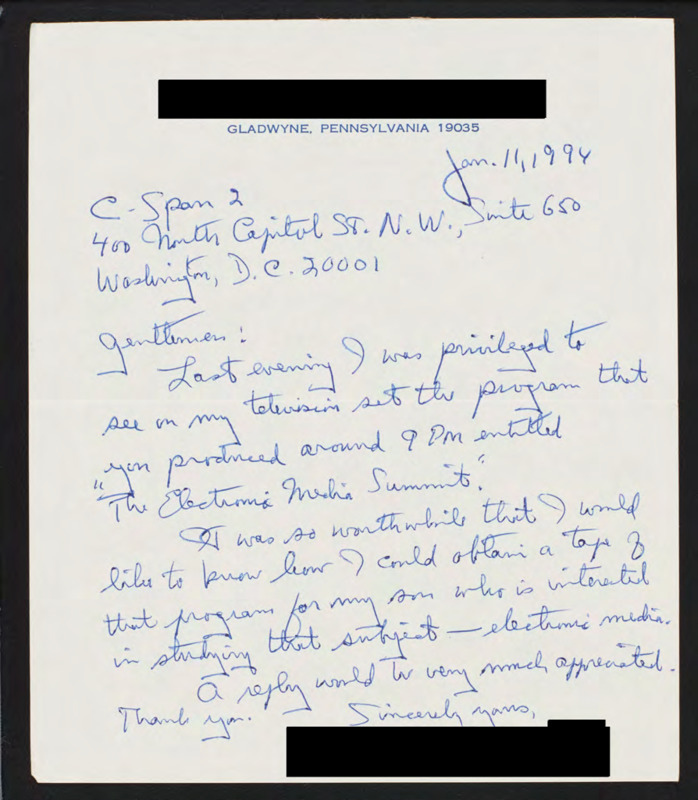 GLADWYNE, PENNSYLVANIA 19035
Jan. 11, 1994
C-Span 2
400 North Capitol St. N.W., Suite 650
Washington, D.C. 20001
Gentlemen:
Last evening I was privileged to
see on my television set the program that
you produced around 9 PM entitled
"The Electronic Media Summit."
It was so worthwhile that I would
like to know how I could obtain a tape of
that program for my son who is interested
in studying that subject — electronic media.
A reply would be very much appreciated.
Thank you. Sincerely yours,